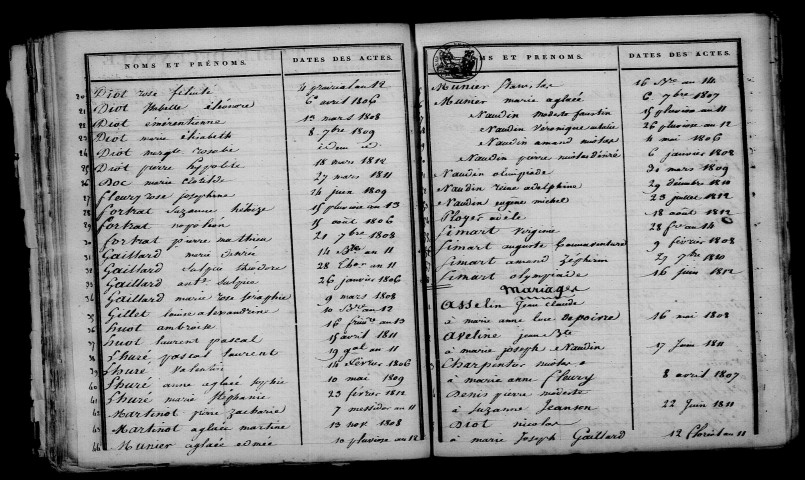 NOMS ET PRÉNOMS. DATES DES ACTES.
20 Diot rose félicité 4 prairial an 12
21 Diot Isabelle éléonore 6 avril 1806
22 Diot émérentienne 13 mars 1808
23 Diot marie élisabeth 8 7bre 1809
24 Diot rosalie idem id
25 Diot pierre hypolite 18 mars 1812
26 Doc marie clotilde 27 mars 1811
27 fleury rose josephine 24 juin 1809
28 fortrat Suzanne héloize 15 pluviose an 13
29 fortrat 15 août 1806
30 fortrat pierre mathieu 21 7bre 1808
31 Gaillard an 11
32 Gaillard Sulpice théodore 28 an 11
33 Gaillard ante Sulpice 26 janvier 1806
34 Gaillard marie rose 9 mars 1808
35 Gillet louise alexandrine 10 Bre an 12
36 huot ambroise 16 an 13
37 huot laurent pascal 15 avril 1811
38 Lhuré pascal laurent 19 an 11
39 Lhuré Valentin 14 février 1806
40 Lhuré anne aglaée sophie 10 mai 1809
41 Lhuré marie Stéphanie 23 février 1812
42 Martinot pierre zacharie 7 messidor an 11
43 Martinot aglaée martine 13 nov. 1808
44 Munier aglaée 10 pluviose an 12
NOMS ET PRENOMS. DATES DES ACTES.
Munier 16 an 14
Munier marie aglaée 6 7bre 1807
Naudin modeste faustin 15 pluviose an 11
Naudin Véronique eulalie 26 pluviose an 12
Naudin amand 4 mai 1806
Naudin pierre nicolas désiré 6 janvier 1808
Naudin olimpiade 30 mars 1809
Naudin reine adelphine 29 décembre 1810
Naudin eugene michel 23 juillet 1812
Ployer adèle 18 août 1812
Simart Virginie 28 an 14
Simart auguste bonnaventure 9 février 1808
Simart amand Zéphirin 29 7bre 1810
Simart olympiade 16 juin 1812
Mariages
Asselin Jean claude
à marie anne luce Deposire 16 mai 1808
Aveline jean Bte
à marie joseph Naudin 17 Juin 1811
Charpentier nicolas
à marie anne fleury 8 avril 1807
Denis pierre modeste
à Suzanne Jeanson 22 Juin 1811
Diot nicolas
à marie Joseph Gaillard 12 floréal an 11